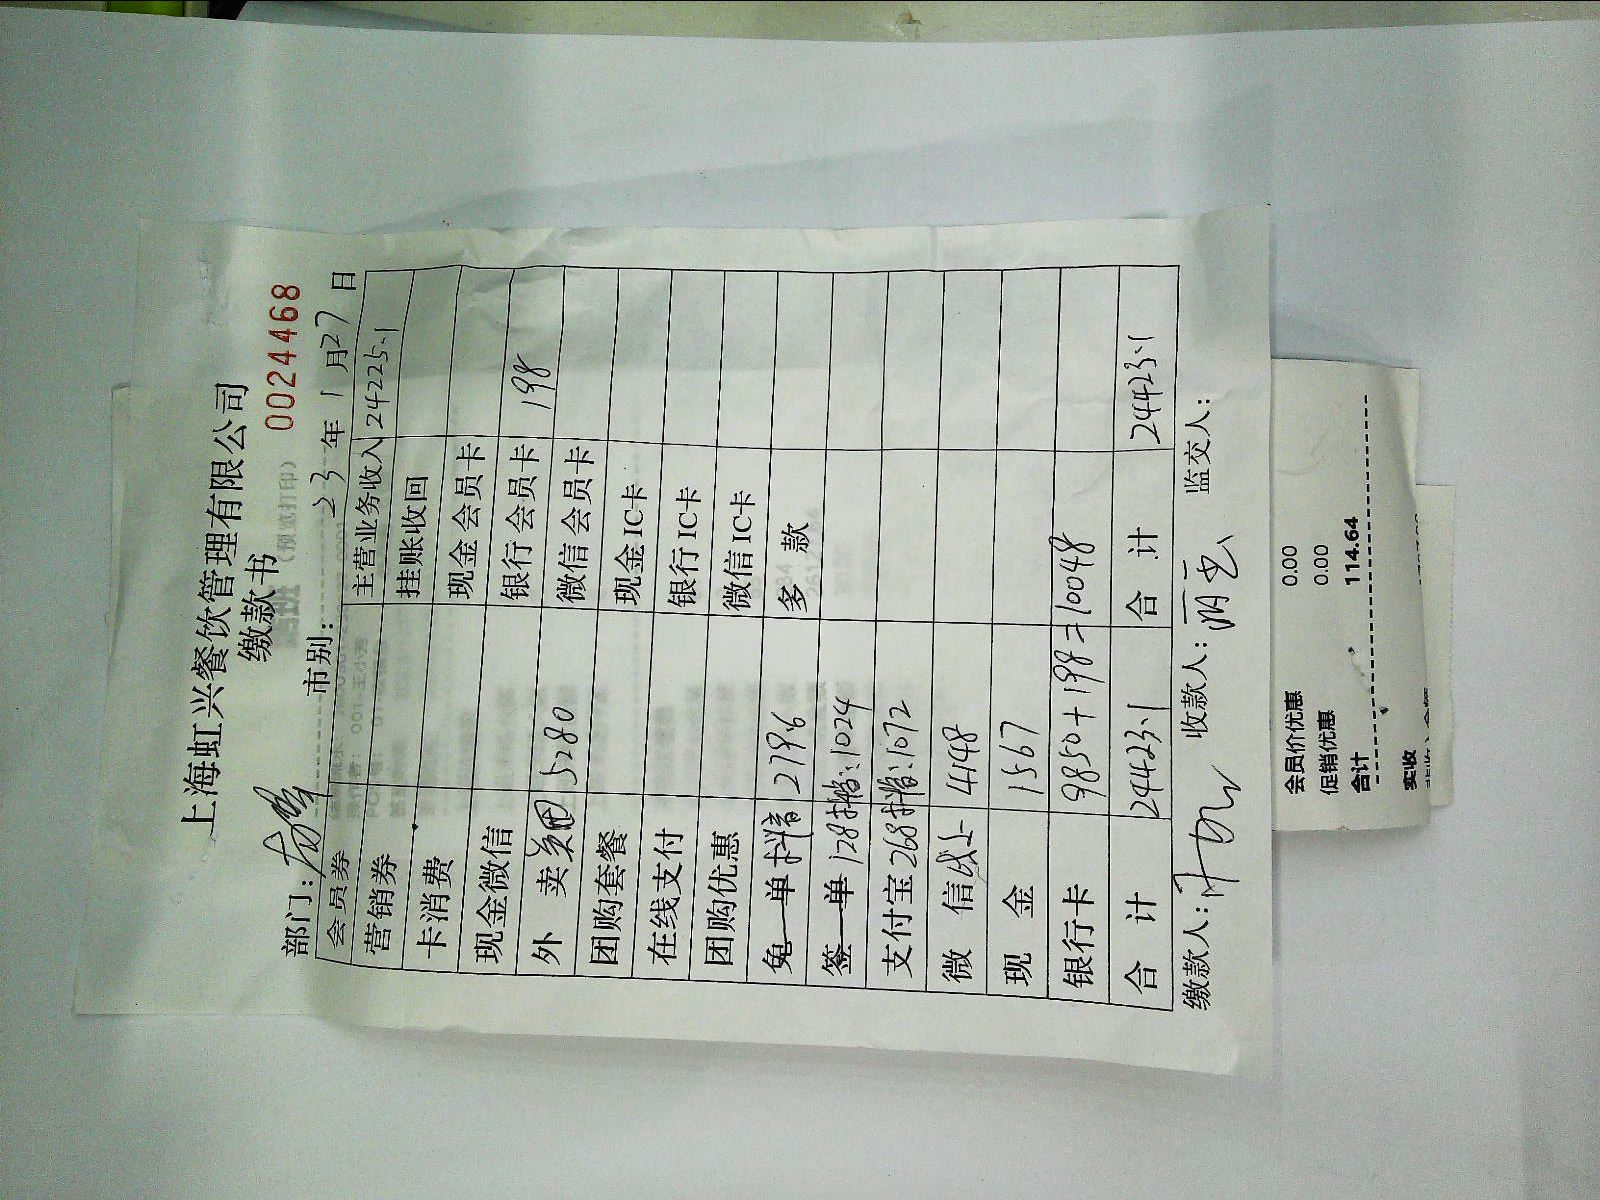 上海虹兴餐饮管理有限公司
缴款书
0024468
部门: 市别: 23年1月27日
会员券 主营业务收入 24225.1
营销券 挂账收回
卡消费 现金会员卡
现金微信 银行会员卡 198
外 卖 美团 5280 微信会员卡
团购套餐 现金IC卡
在线支付 银行IC卡
团购优惠 微信IC卡
免 单 抖音 2796 多 款
签 单 128 抖音:1024
支付宝 268 抖音:1072
微 信 线上 4148
现 金 1567
银行卡 9850+198=10048
合 计 24423.1 合 计 24423.1
缴款人: 收款人: 监交人:
会员价优惠 0.00
促销优惠 0.00
合计 114.64
实收